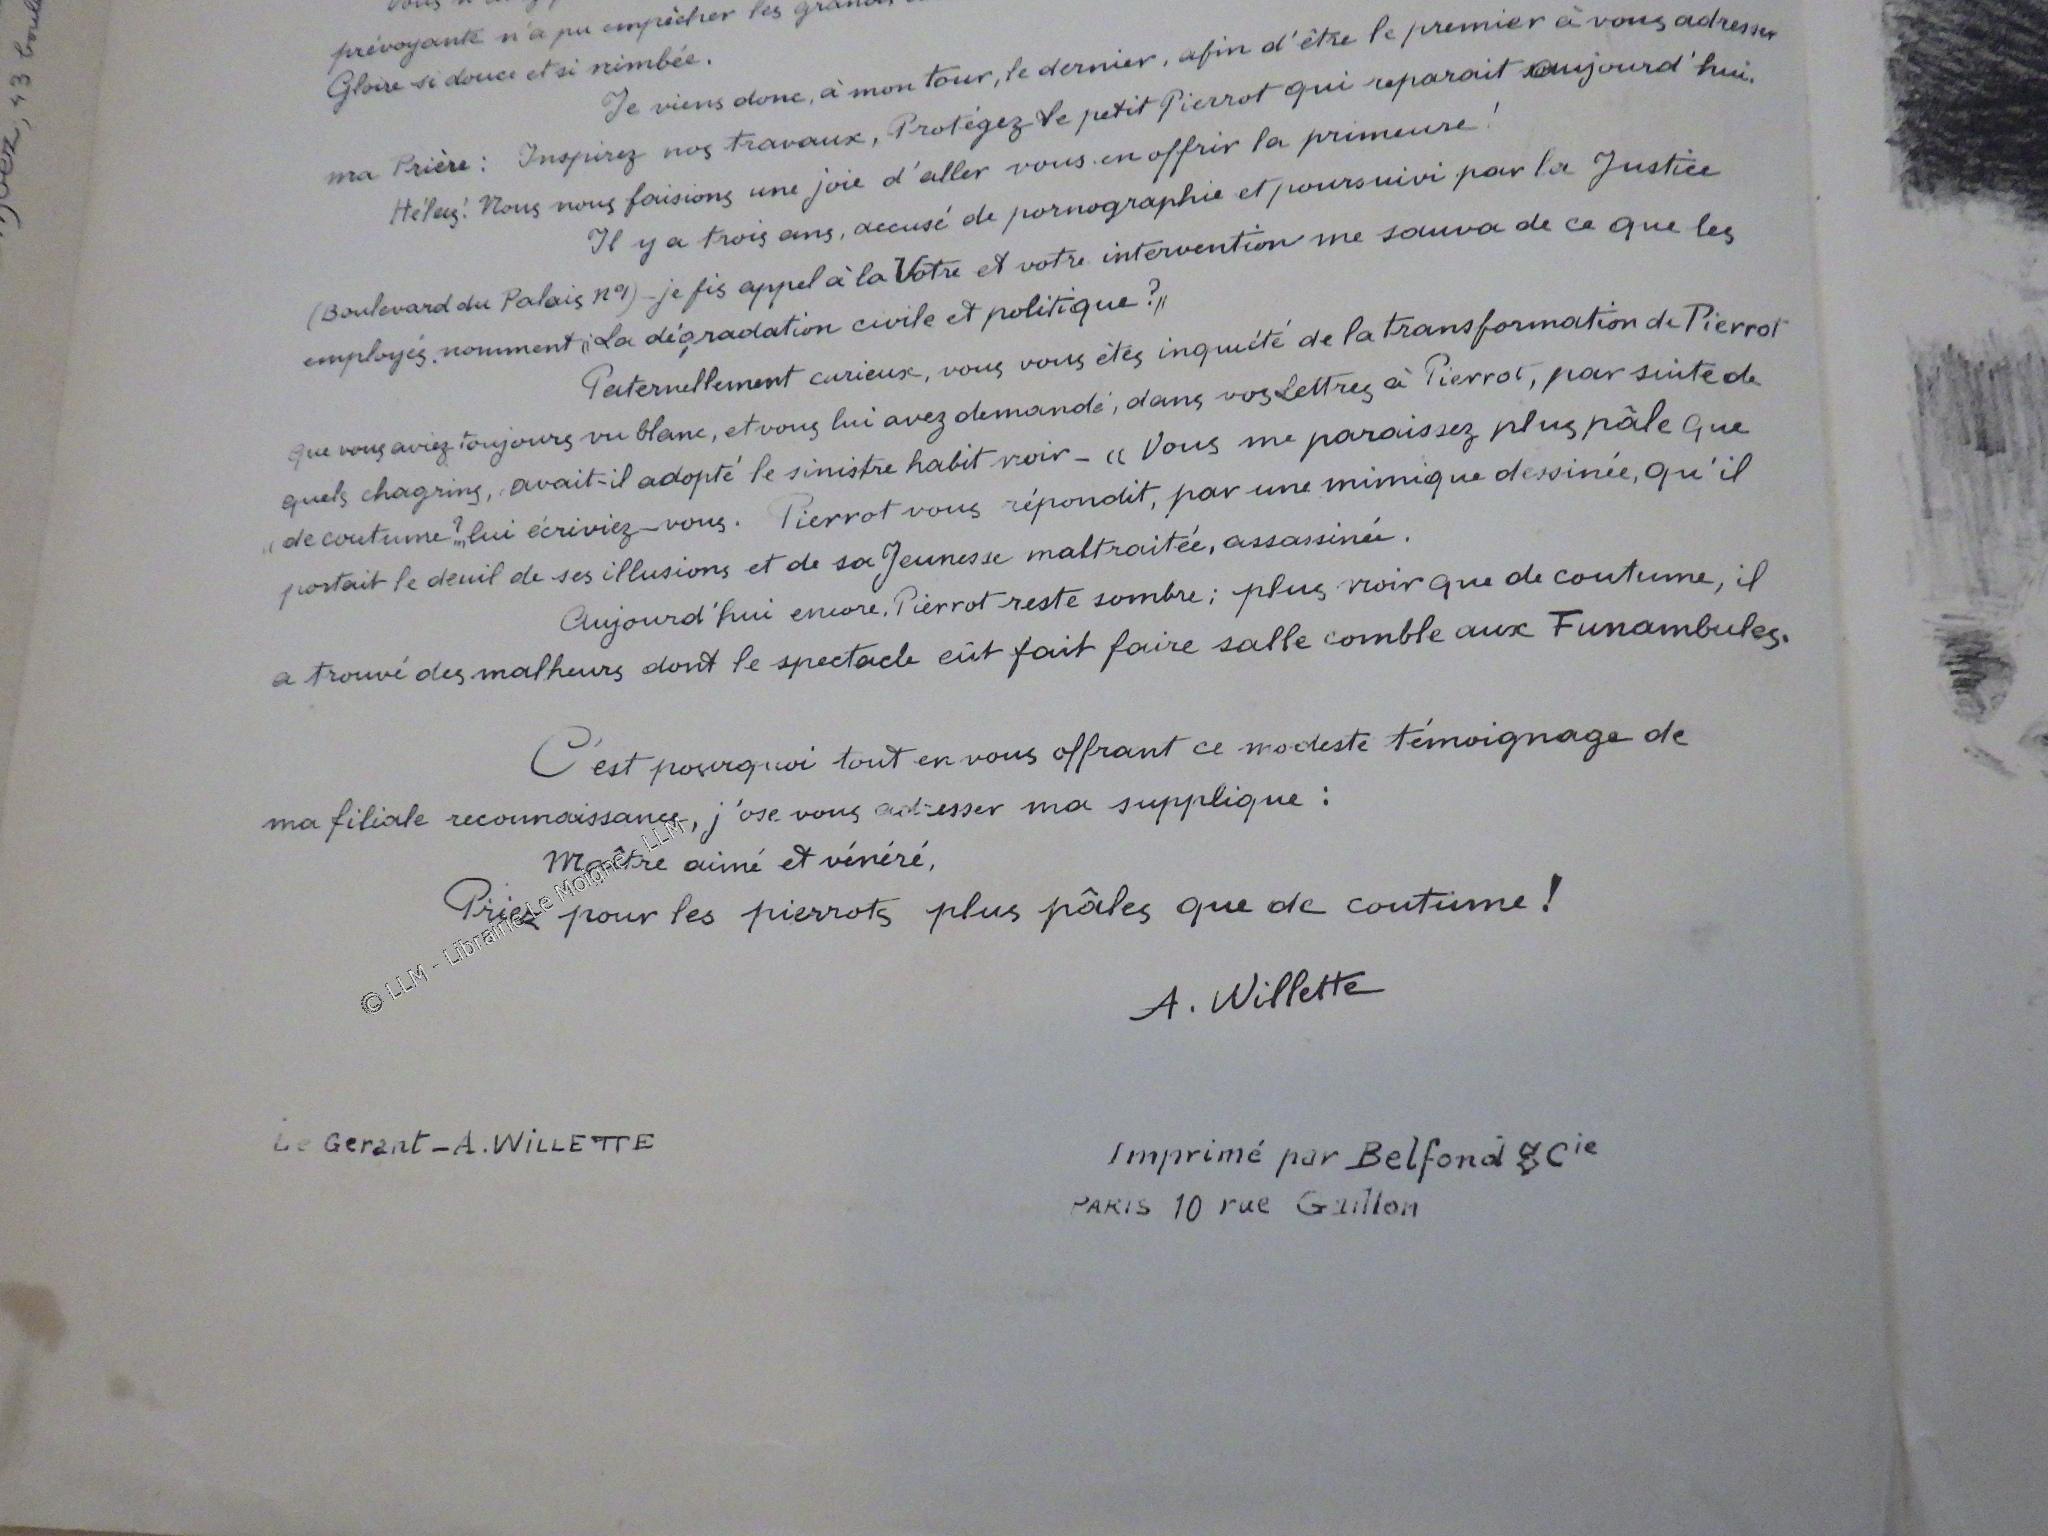 prévoyante n'a pu empêcher les grands
Gloire si douce et si nimbée.
Je viens donc, à mon tour, le dernier, afin d'être le premier à vous adresser
ma Prière: Inspirez nos travaux, Protégez le petit Pierrot qui reparait aujourd'hui.
Hélas! Nous nous faisions une joie d'aller vous en offrir la primeure!
Il y a trois ans, accusé de pornographie et poursuivi par la Justice
(Boulevard du Palais n°1) - je fis appel à la Votre et votre intervention me sauva de ce que les
employés nomment "La dégradation civile et politique?"
Paternellement curieux, vous vous êtes inquiété de la transformation de Pierrot
que vous aviez toujours vu blanc, et vous lui avez demandé, dans vos Lettres à Pierrot, par suite de
quels chagrins, avait-il adopté le sinistre habit noir - « Vous me paraissez plus pâle que
"de coutume?" lui écriviez-vous. Pierrot vous répondit, par une mimique dessinée, qu'il
portait le deuil de ses illusions et de sa Jeunesse maltraitée, assassinée.
Aujourd'hui encore, Pierrot reste sombre; plus noir que de coutume, il
a trouvé des malheurs dont le spectacle eût fait faire salle comble aux Funambules.
C'est pourquoi tout en vous offrant ce modeste témoignage de
ma filiale reconnaissance, j'ose vous adresser ma supplique :
Maître aimé et vénéré,
Priez pour les pierrots plus pâles que de coutume!
A. Willette
Le Gerant - A. WILLETTE
Imprimé par Belfond & Cie
PARIS 10 rue Gaillon
© LLM - Librairie Le Moigne - LLM
43 boul